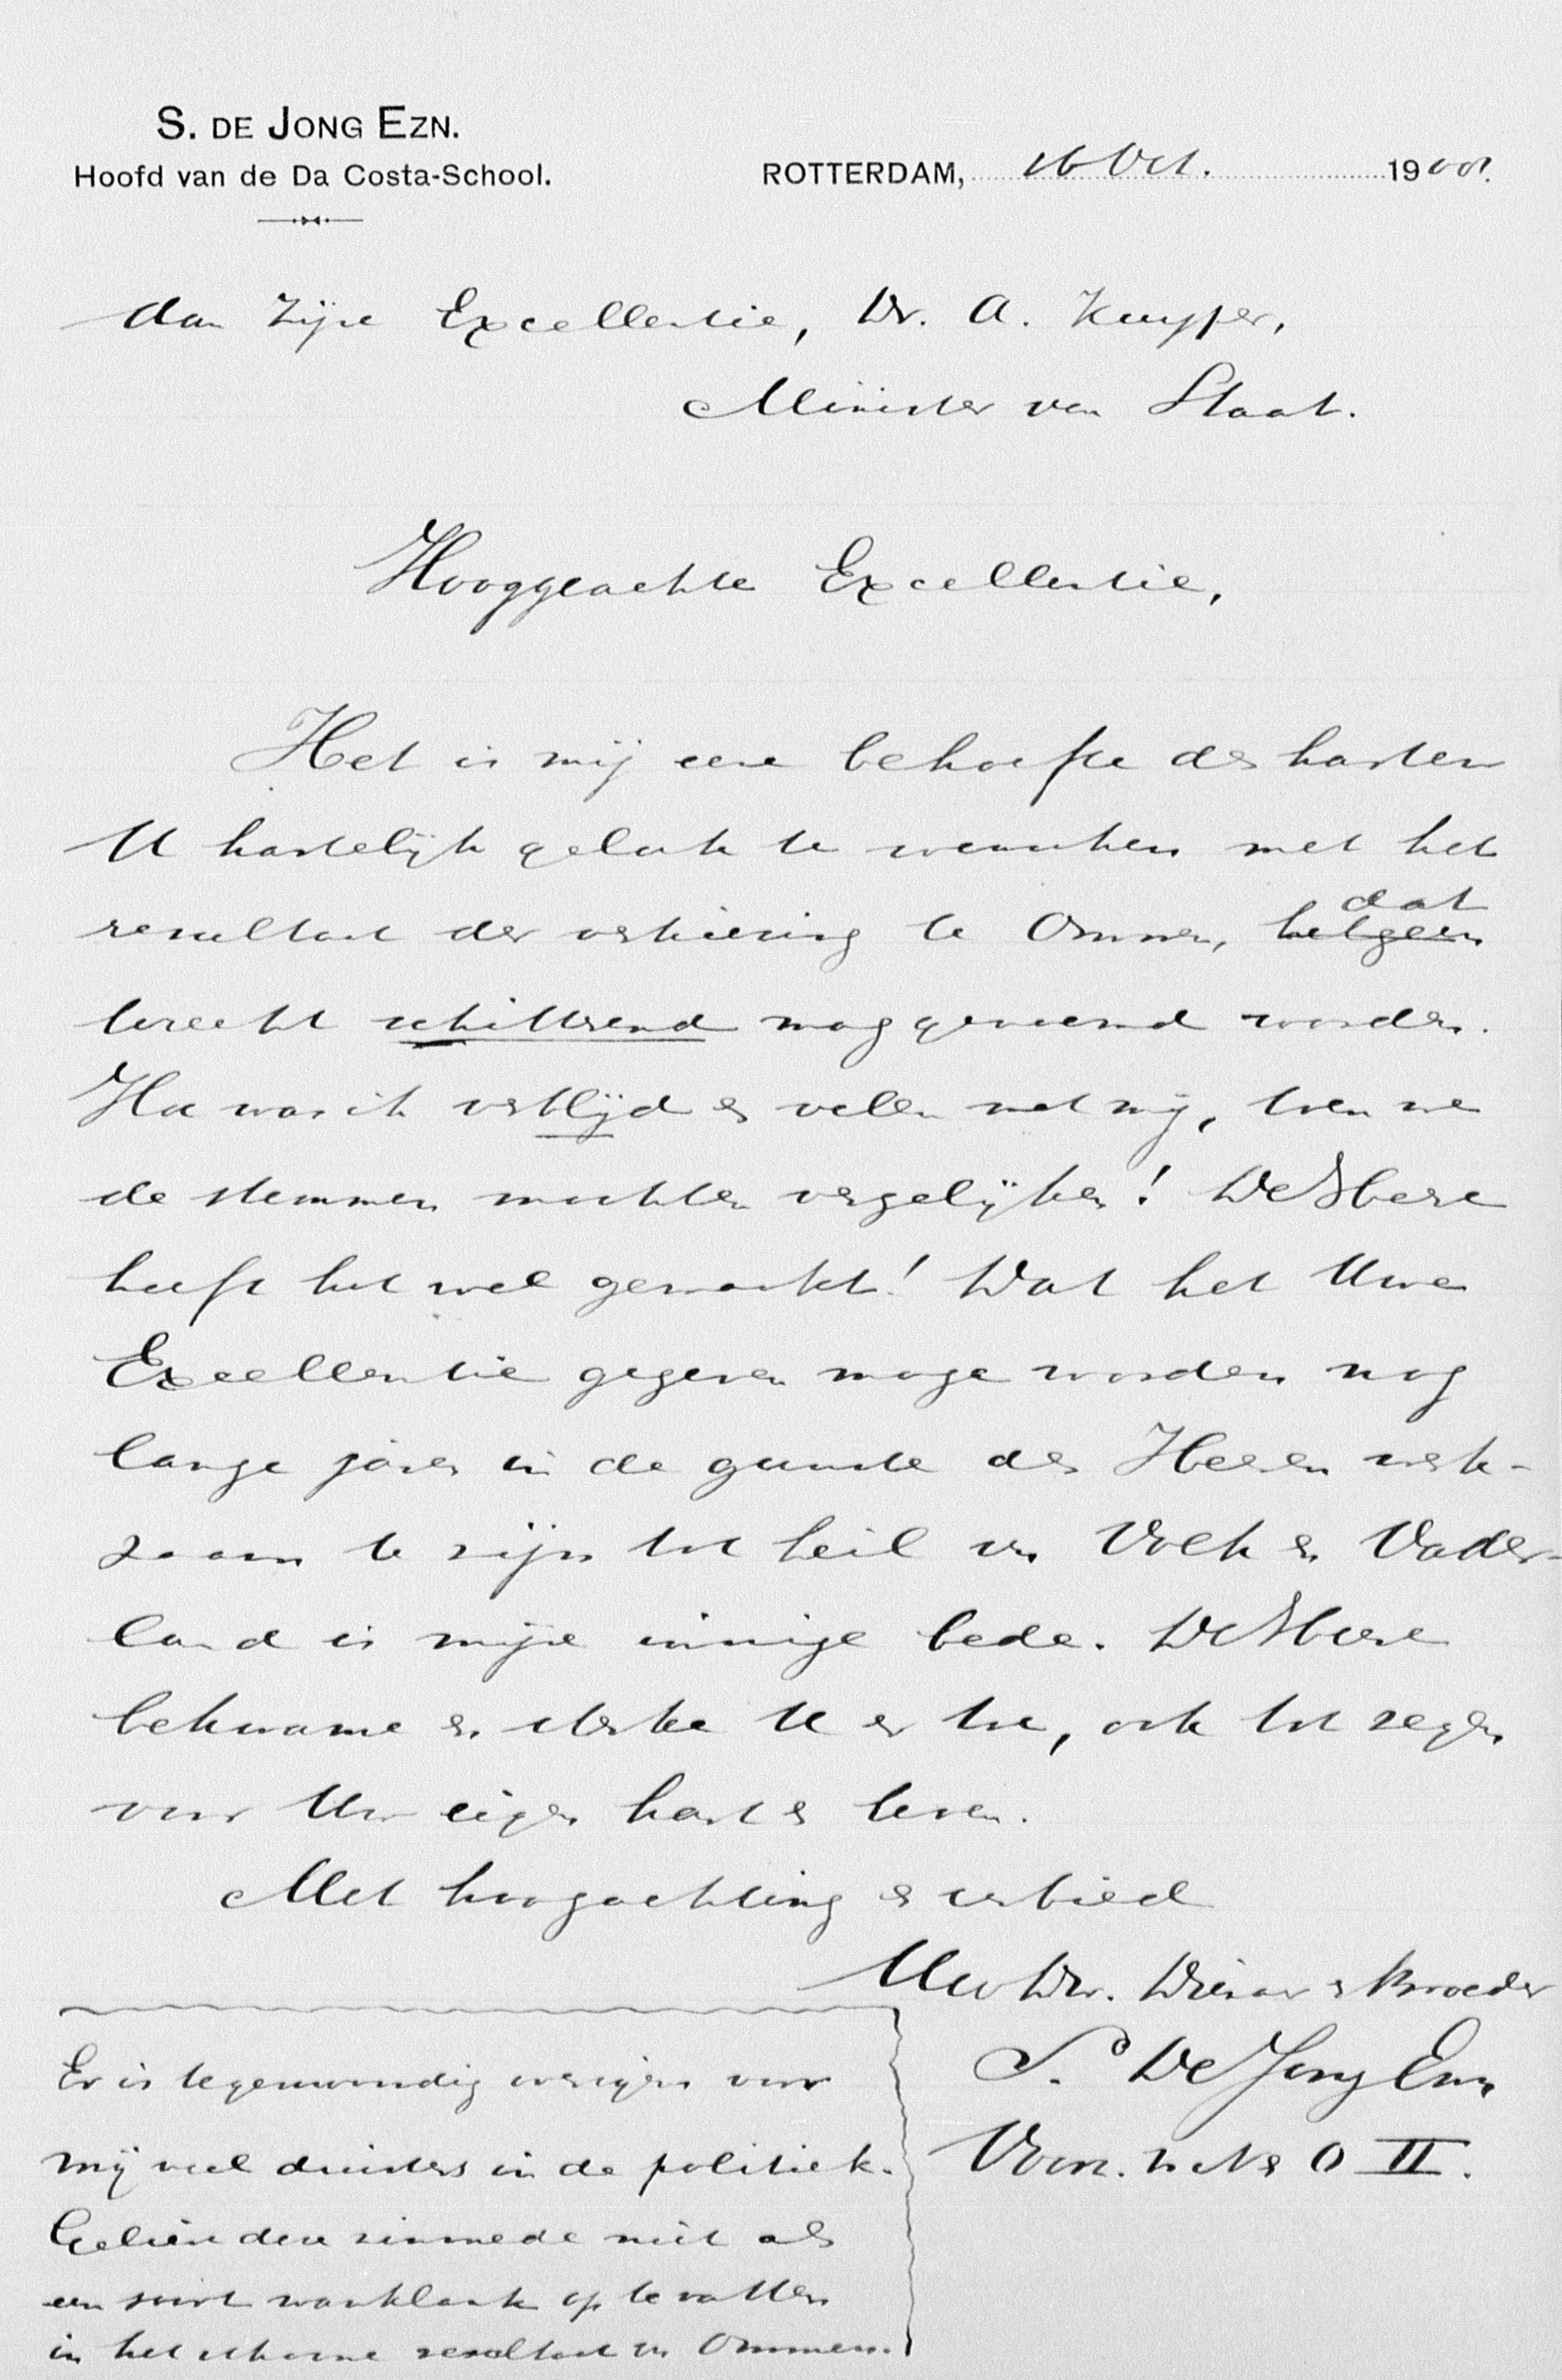 S. DE JONG EZN.
Hoofd van de Da Costa-School.
ROTTERDAM, 16 Oct. 1908.
Aan Zijne Excellentie, Dr. A. Kuyper,
Minister van Staat.
Hooggeachte Excellentie,
Het is mij eene behoefte des harten
U hartelijk geluk te wenschen met het
resultaat der verkiezing te Ommen, hetgeen dat
terecht schitterend mag genoemd worden.
Hoe was ik verblijd en velen met mij, toen we
de stemmen mochten vergelijken! De Heere
heeft het wel gemaakt! Dat het Uwe
Excellentie gegeven moge worden nog
lange jaren in de gunste des Heeren werk-
zaam te zijn tot heil van Volk en Vader-
land is mijne innige bede. De Heere
bekwame en sterke U er toe, ook tot zegen
voor Uw eigen hart en leven.
Met hoogachting en eerbied
Uw Dw. Dienaar en Broeder
S. De Jong Ezn
Voorz. v. N O II.
Er is tegenwoordig overigens voor
mij veel duisters in de politiek.
Gelieve deze zinsnede niet als
een soort wanklank op te vatten
in het schoone resultaat van Ommen.